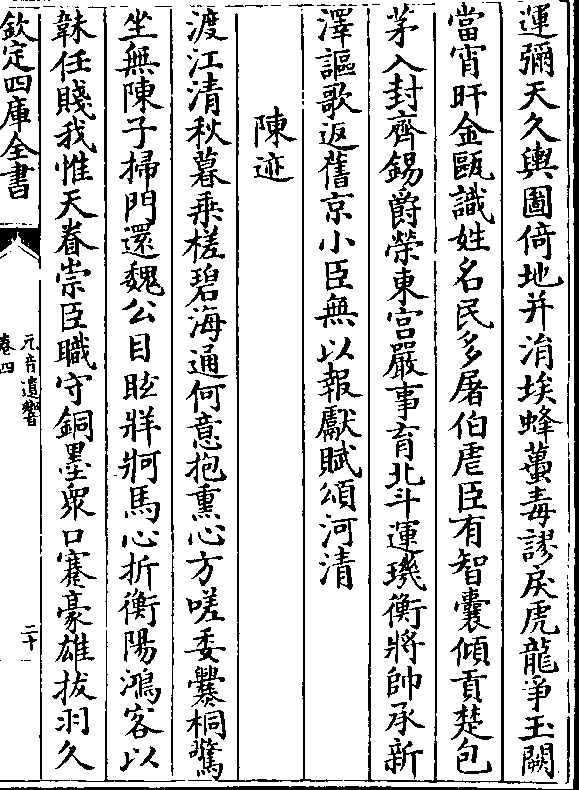 運彌天久輿圖倚地并涓埃蜂蠆毒謬戾虎龍爭玉闕
當宵旰金甌識姓名民多屠伯虐臣有智囊傾貢楚包
茅入封齊錫爵榮東宫嚴事育北斗運璣衡將帥承新
澤謳歌返舊京小臣無以報獻賦頌河清
陳迹
渡江清秋暮乗槎碧海通何意抱熏心方嗟委爨桐驚
坐無陳子掃門還魏公目眩牂牁馬心折衡陽鴻客以
韎任賤我惟天眷崇臣職守銅墨衆口蹇豪雄拔羽久
欽定四庫全書
元音遺響
卷四
二十